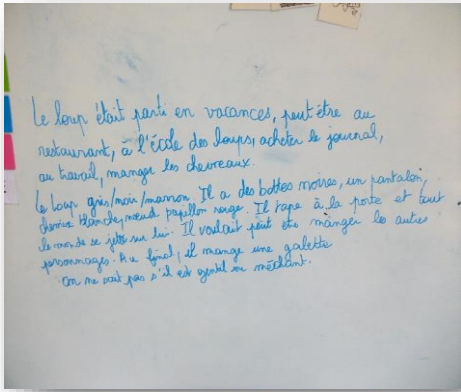 Le loup était parti en vacances, peut être au
restaurant, à l'école des loups, acheter le journal,
au travail, manger les chevreaux.
Le loup gris/noir/marron. Il a des bottes noires, un pantalon,
chemise blanche, nœud papillon rouge. Il tape à la porte et tout
le monde se jette sur lui. Il voulait peut être manger les autres
personnages. Au final, il mange une galette
on ne sait pas s'il est gentil ou méchant.